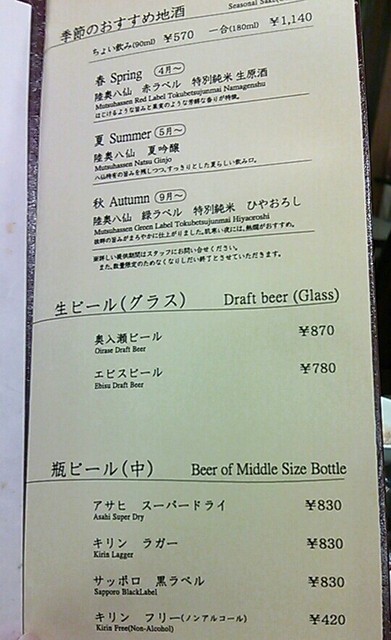 季節のおすすめ地酒 Seasonal
ちょい飲み(90ml) ¥570 一合(180ml) ¥1,140
春 Spring 4月～
陸奥八仙 赤ラベル 特別純米 生原酒
Mutsuhassen Red Label Tokubetsujunmai Namagenshu
はじけるような旨みと果実のような芳醇な香りが特徴。
夏 Summer 5月～
陸奥八仙 夏吟醸
Mutsuhassen Natsu Ginjo
八仙特有の旨みを残しつつ、すっきりとした夏らしい飲み口。
秋 Autumn 9月～
陸奥八仙 緑ラベル 特別純米 ひやおろし
Mutsuhassen Green Label Tokubetsujunmai Hiyaoroshi
抜群の旨みがまろやかに仕上がりました。肌寒い夜には、熱燗がおすすめ。
※詳しい提供期間はスタッフにお問い合せください。
また、数量限定のためなくなりしだい終了とさせていただきます。
生ビール(グラス) Draft beer (Glass)
奥入瀬ビール ¥870
Oirase Draft Beer
エビスビール ¥780
Ebisu Draft Beer
瓶ビール(中) Beer of Middle Size Bottle
アサヒ スーパードライ ¥830
Asahi Super Dry
キリン ラガー ¥830
Kirin Lagger
サッポロ 黒ラベル ¥830
Sapporo BlackLabel
キリン フリー(ノンアルコール) ¥420
Kirin Free(Non-Alcohol)